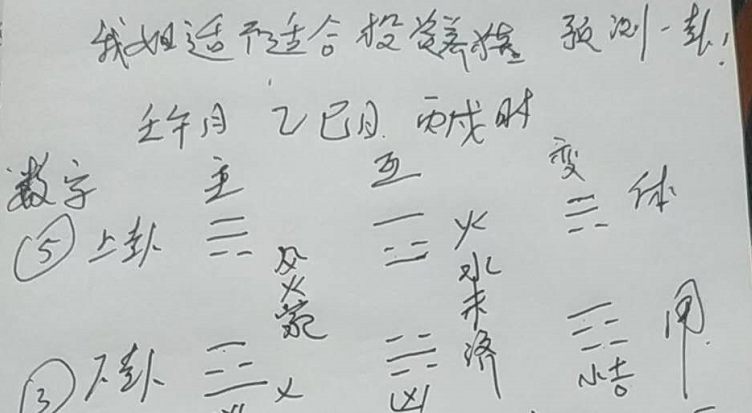 我姐适不适合投资养猪 预测一卦!
壬午月 乙巳日 丙戌时
数字 主 互 变
⑤上卦 风火家 火水未济 体
③下卦 火 凶 小吉 用